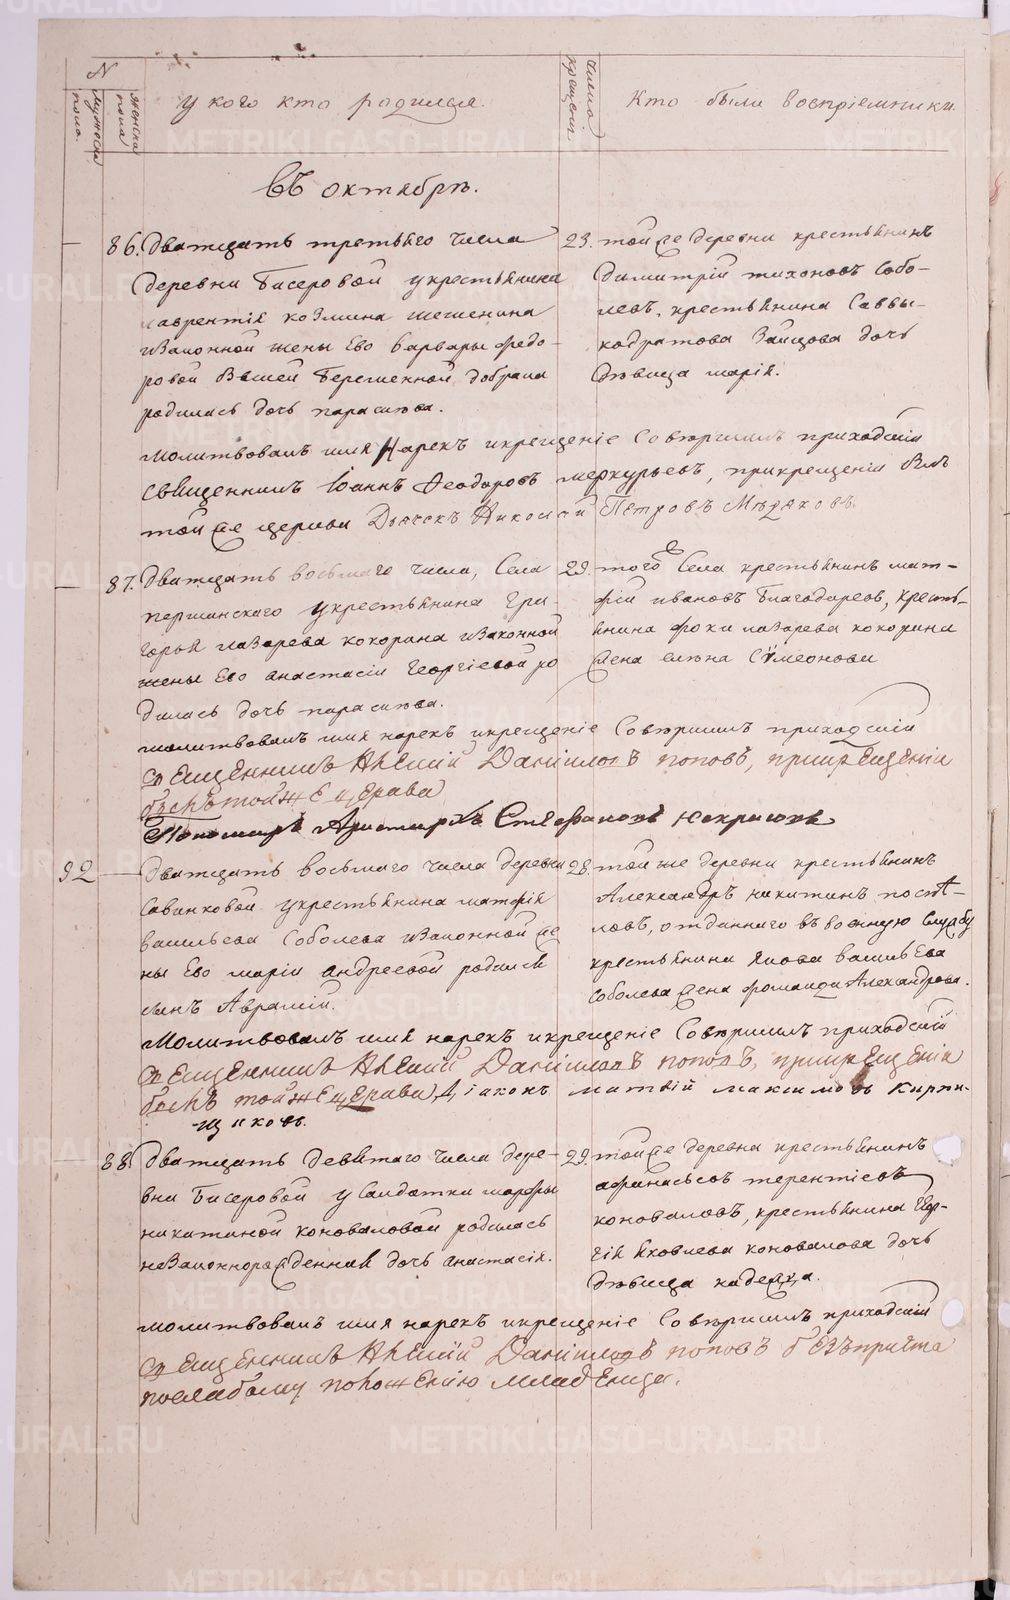 N
мужеска пола.
женска пола
У кого кто родился.
число крещенія
Кто были воспріемники.
Въ октябрѣ.
86. Дватцать третьяго числа
деревни Бисеровой у крестьянина
лаврентія козмина
изаконной жены Ево варвары федо-
ровой
родилась дочь параскева.
23. той же деревни крестьянинъ
Димитрій тихоновъ Собо-
левъ, крестьянина Саввы
кодратова Зайцова дочь
Дѣвица марія.
Молитвовалъ имя Нарекъ икрещеніе Совершилъ приходскій
Священникъ Іоаннъ Феодоровъ меркурьевъ, прикрещеніи былъ
той же церкви Дьячекъ Николай Петровъ
87. Дватцать восьмаго числа, Села
першинскаго у крестьянина Гри-
горья лазарева кокорина изаконной
жены Ево анастасіи Георгіевой ро
дилась дочь параскева.
29. того Села крестьянинъ мат-
фій ивановъ Благодаревъ, кресть-
янина фоки лазарева кокорина
жена елена Сѵмеонова
молитвовалъ имя нарекъ икрещеніе Совершилъ приходскій
СвЯщЕнникъ АлЕксій Даниіловъ поповъ, прикрЕщЕніи
былъ той жЕ цЕркви
Пономарь Аристархъ Стефановъ Некрасовъ
92 Дватцать восьмаго числа деревни
Савинковой у крестьянина матфія
васильева Соболева изаконной же
ны Ево маріи андреевой родился
сынъ Аврамій.
28. той же деревни крестьянинъ
Александръ никитинъ поспѣ-
ловъ, отданнаго въ военную Службу
крестьянина Якова васильЕва
Соболева жена Александрова.
Молитвовалъ имя нарекъ икрещеніе Совершилъ приходскій
СвЯщЕнникъ АлЕксій Даниіловъ поповъ, прикрЕщЕніи
былъ той жЕ цЕркви, діаконъ матвій максимовъ Кирпи-
щиковъ.
88. Дватцать Девятаго числа дере-
вни Бисеровой у Салдатки марфы
никитиной коноваловой родилась
незаконнорожденная дочь анастасія.
29. той же деревни крестьянинъ
афанасьевъ терентіевъ
коноваловъ, крестьянина Геор-
гія яковлева коновалова дочь
Дѣвица надежда.
молитвовалъ имя нарекъ икрещеніе Совершилъ приходскій
СвЯщЕнникъ АлЕксій Даниіловъ поповъ бЕзъ причта
послабому положЕнію младЕнца.
METRIKI.GASO-URAL.RU